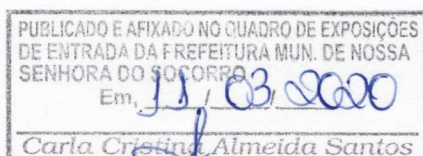 PUBLICADO E AFIXADO NO QUADRO DE EXPOSIÇÕES
DE ENTRADA DA PREFEITURA MUN. DE NOSSA
SENHORA DO SOCORRO
Em, 11 / 03 / 2020
Carla Cristina Almeida Santos